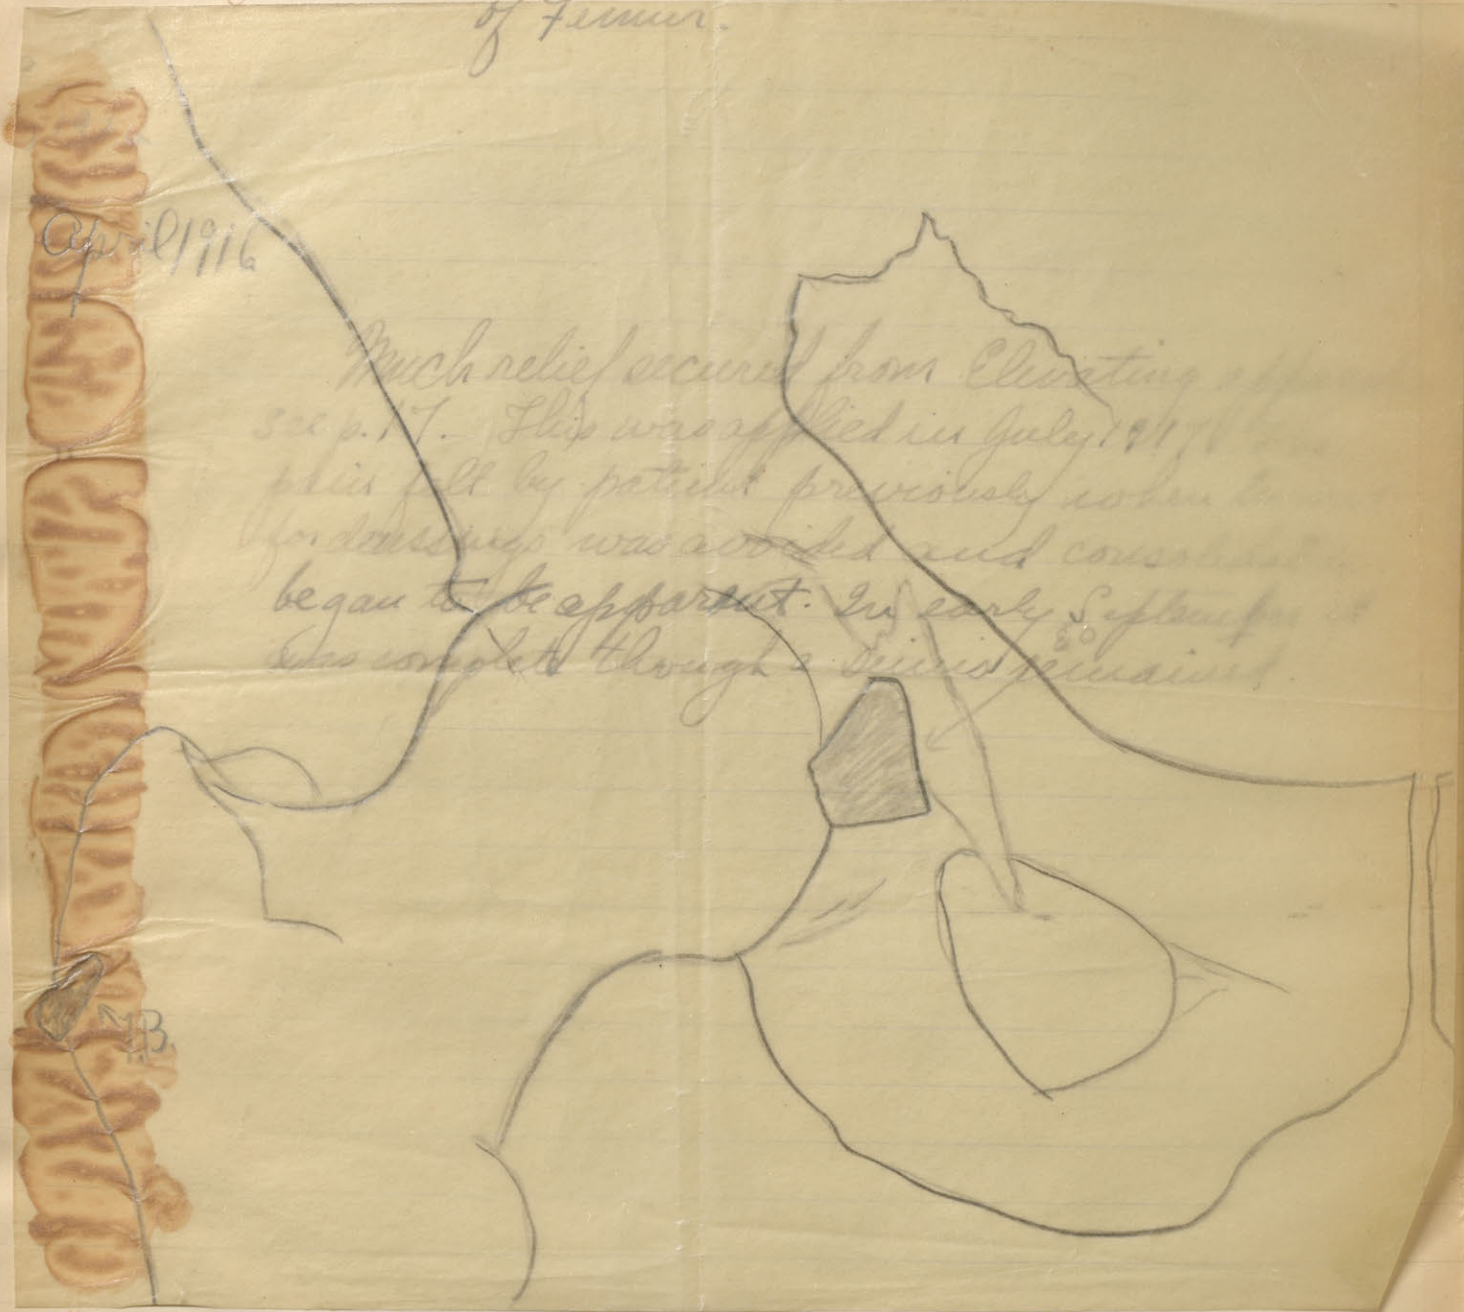 of Femur.
April 1916
Much relief secured from Elevating
see p. 17. This was applied in July 1917
pain felt by patient previously when
for dressings was avoided and
began to be apparent. In early September
was complete though a sinus remained.
F.B.